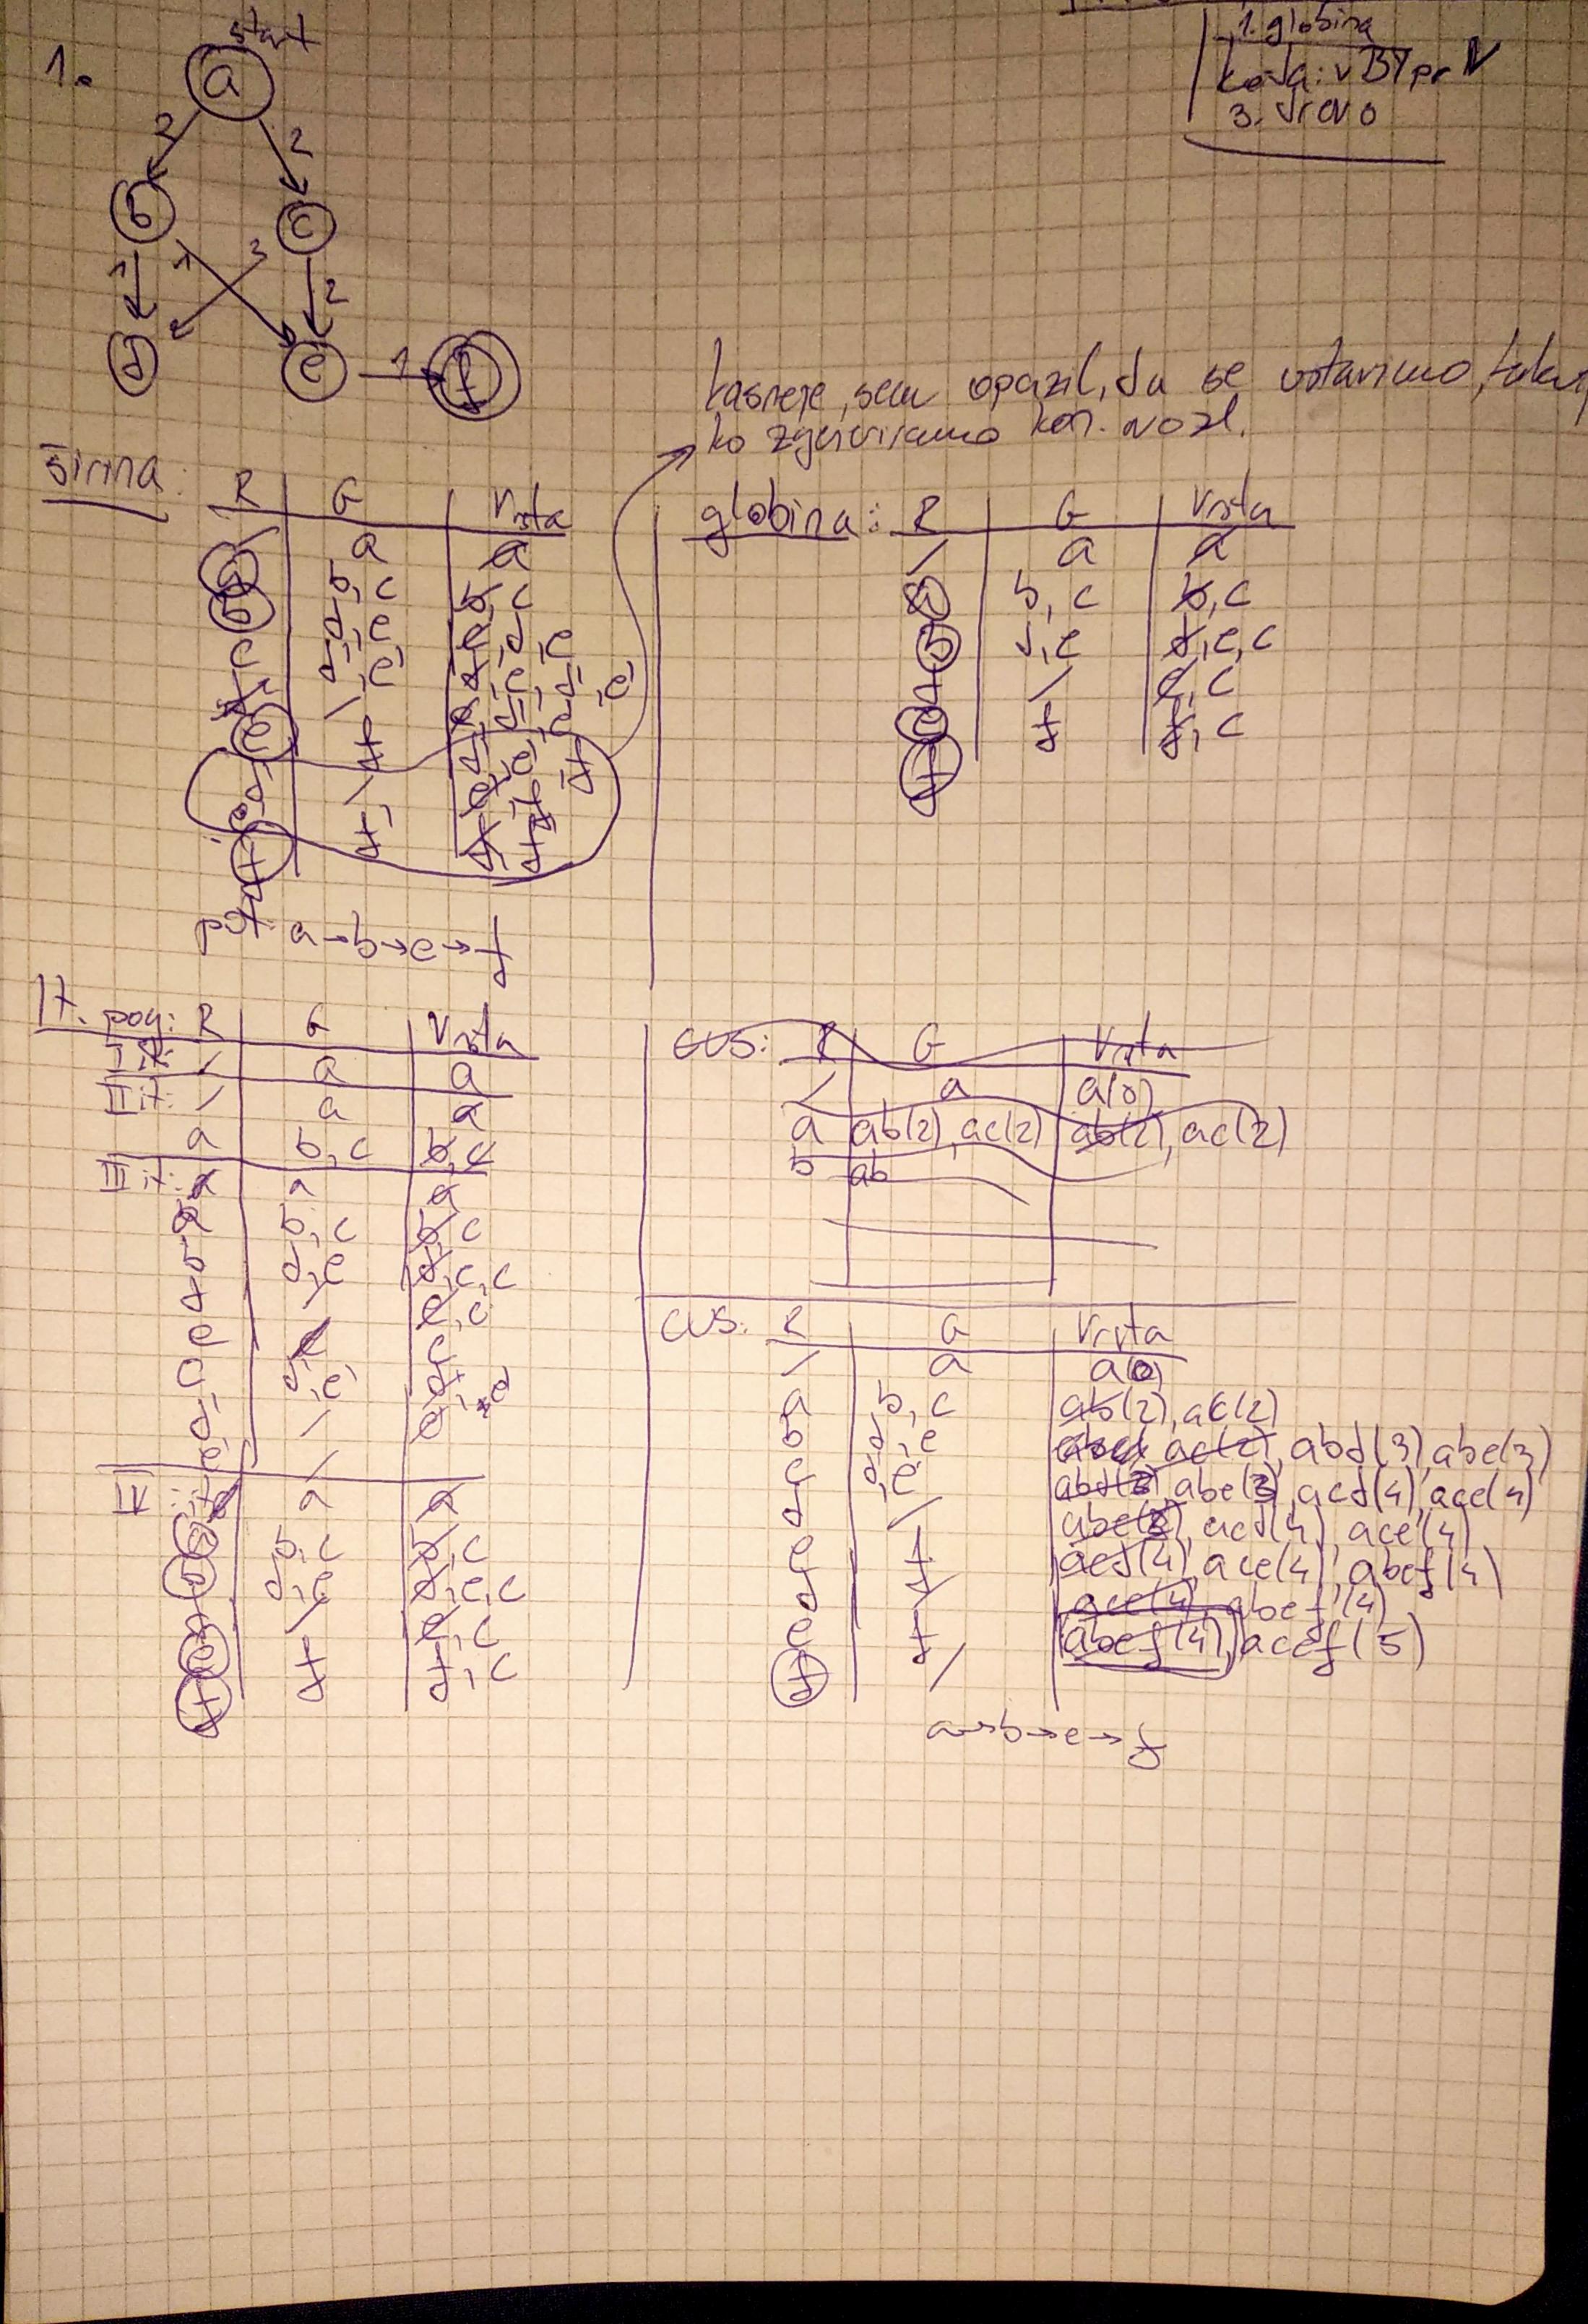 1. globina
koda: v BT pr N
3. drevo
1.
start
a
2 2
b c
1 1 3 2
d e 1 f
kasneje sem opazil, da se ustavimo, takoj
ko zgeneriramo kon. vozl.
širina: R G Vrsta
/ a a
a b, c b, c
b d, e c, d, e
c d', e' d, e, d', e'
d / e, d', e'
e f d', e', f
d' / e', f
e' f' f, f'
f
pot: a→b→e→f
globina: R G Vrsta
/ a a
a b, c b, c
b d, e d, e, c
d / e, c
e f f, c
f
It. pog: R G Vrsta
I it: / a a
II it: / a a
a b, c b, c
III it: / a a
a b, c b, c
b d, e d, e, c
d / e, c
e / c
c d', e' d', e'
d' / e'
e' /
IV it: / a a
a b, c b, c
b d, e d, e, c
d / e, c
e f f, c
f
CUS: R G Vrsta
/ a a(0)
a ab(2), ac(2) ab(2), ac(2)
b ab
CUS: R G Vrsta
/ a a(0)
a b, c ab(2), ac(2)
b d, e ac(2), abd(3), abe(3)
c d', e' abd(3), abe(3), acd(4), ace(4)
d / abe(3), acd(4), ace(4)
e f acd(4), ace(4), abef(4)
d' / ace(4), abef(4)
e f abef(4), acef(5)
f /
a→b→e→f